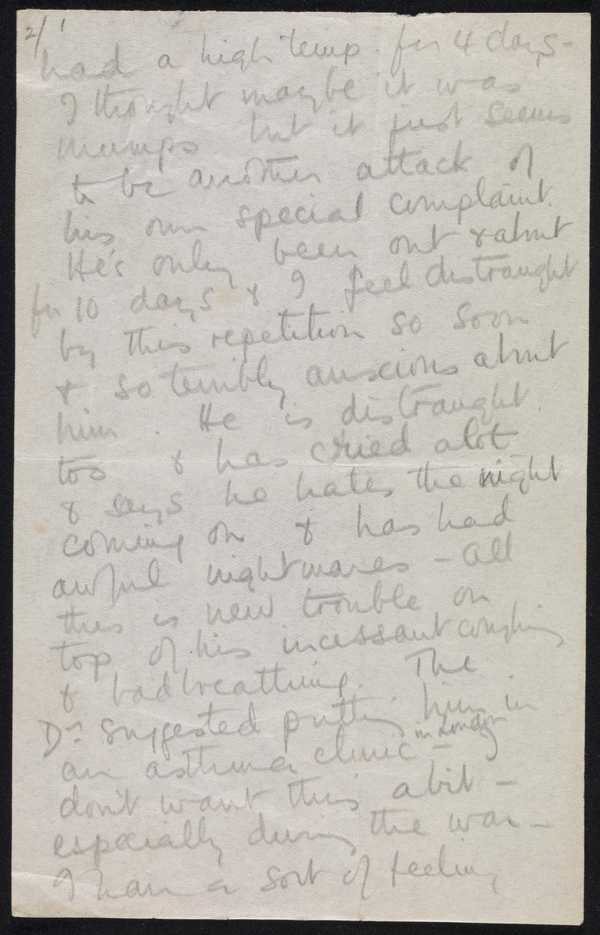 2/
had a high temp. for 4 days -
I thought maybe it was
mumps but it just seems
to be another attack of
his own special complaint.
He's only been out & about
for 10 days & I feel distraught
by this repetition so soon
& so terribly anxious about
him. He is distraught
too & has cried alot
& says he hates the night
coming on & has had
awful nightmares - all
this is new trouble on
top of his incessant coughing
& bad breathing. The
Dr. suggested putting him in
an asthma clinic in London - I
don't want this a bit -
especially during the war -
I have a sort of feeling